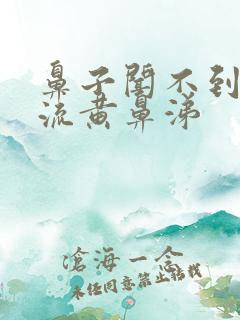 鼻子聞不到
流黄鼻涕
滄海一念
未经同意禁止转载